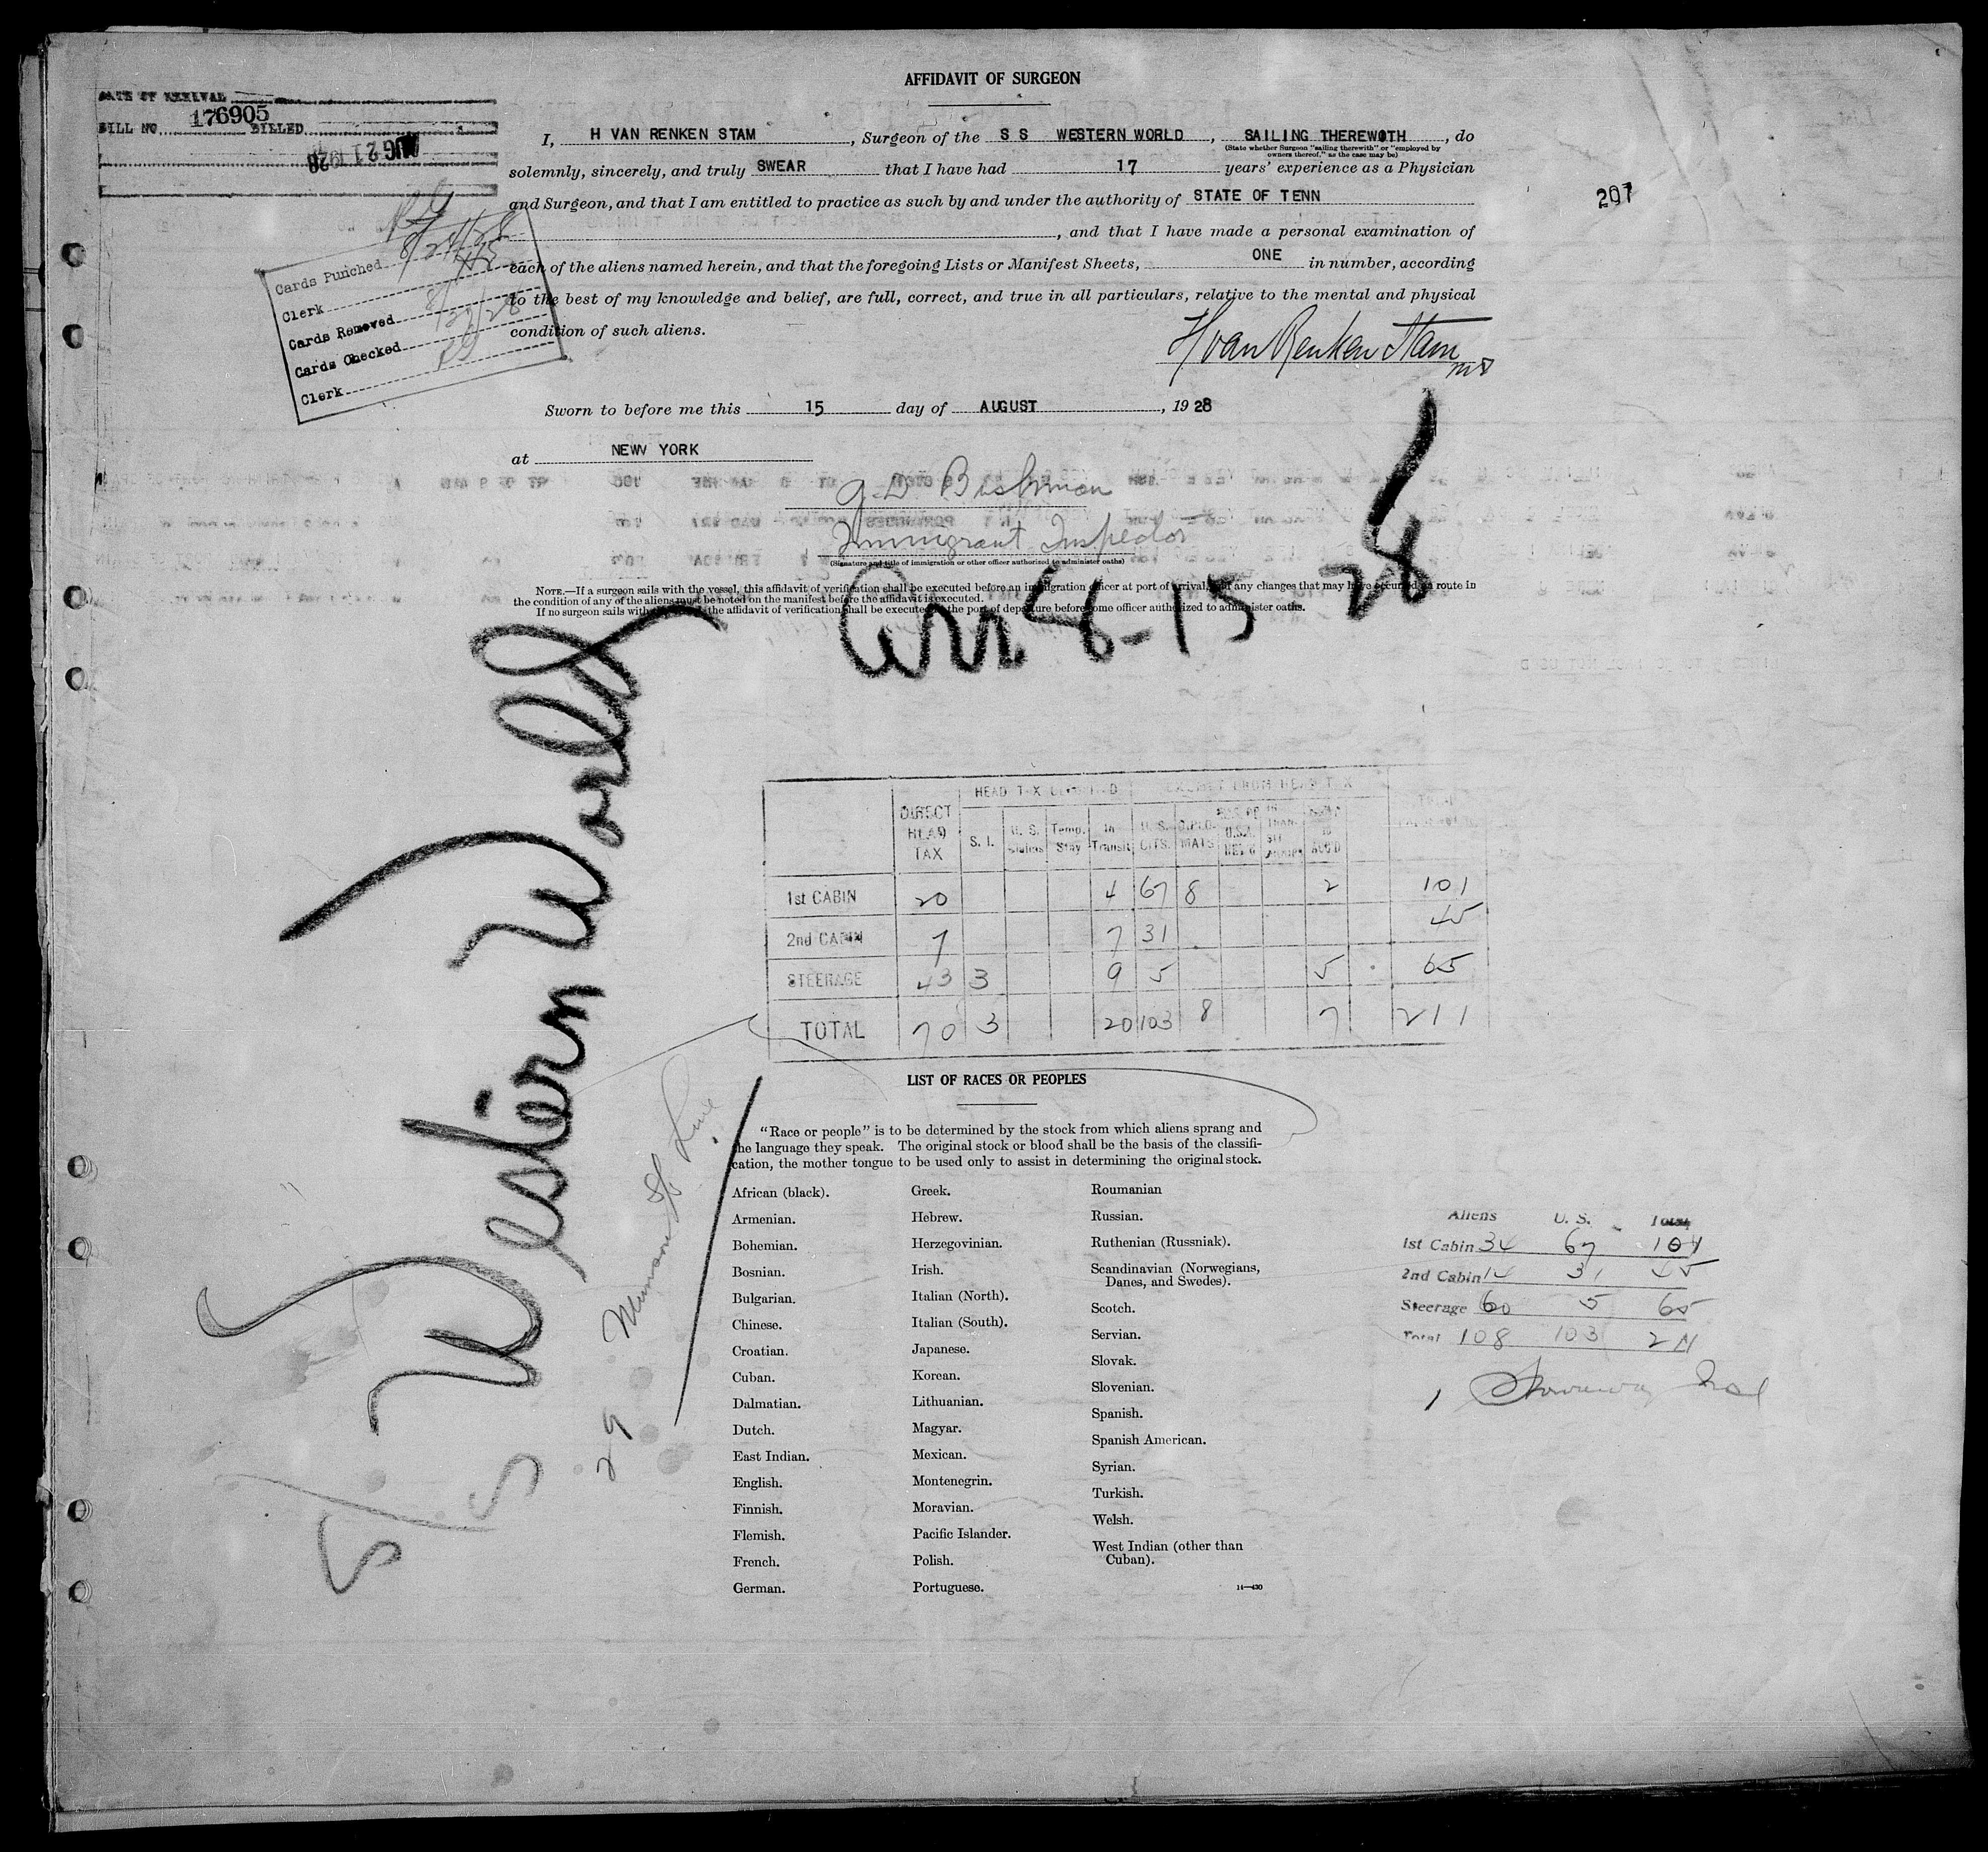 AFFIDAVIT OF SURGEON
DATE OF ARRIVAL
BILL NO. 176905 BILLED
AUG 21 1928
I, H VAN RENKEN STAM, Surgeon of the S S WESTERN WORLD, SAILING THEREWOTH, do
(State whether Surgeon "sailing therewith" or "employed by
owners thereof," as the case may be)
solemnly, sincerely, and truly SWEAR that I have had 17 years' experience as a Physician
and Surgeon, and that I am entitled to practice as such by and under the authority of STATE OF TENN
, and that I have made a personal examination of
each of the aliens named herein, and that the foregoing Lists or Manifest Sheets, ONE in number, according
to the best of my knowledge and belief, are full, correct, and true in all particulars, relative to the mental and physical
condition of such aliens.
207
Cards Punched 8/24/28
Clerk
Cards Removed 8/27/28
Cards Checked
Clerk
H van Renken Stam
MD
Sworn to before me this 15 day of AUGUST, 1928
at NEW YORK
Immigrant Inspector
(Signature and title of immigration or other officer authorized to administer oaths)
NOTE.—If a surgeon sails with the vessel, this affidavit of verification shall be executed before an immigration officer at port of arrival, and any changes that may have occurred en route in
the condition of any of the aliens must be noted on the manifest before the affidavit is executed.
If no surgeon sails with the vessel, the affidavit of verification shall be executed at the port of departure before some officer authorized to administer oaths.
Arr. 8-15 28
S/S Western World
29 Munson SS Line
DIRECT HEAD TAX
HEAD TAX
S. I. U. S. Temp. Stay In Transit
EXEMPT FROM HEAD TAX
U. S. CITS. DIPLOMATS
1st CABIN 20 4 67 8 2 101
2nd CABIN 7 7 31 45
STEERAGE 43 3 9 5 5 65
TOTAL 70 3 20 103 8 7 211
LIST OF RACES OR PEOPLES
"Race or people" is to be determined by the stock from which aliens sprang and
the language they speak. The original stock or blood shall be the basis of the classifi-
cation, the mother tongue to be used only to assist in determining the original stock.
African (black).
Armenian.
Bohemian.
Bosnian.
Bulgarian.
Chinese.
Croatian.
Cuban.
Dalmatian.
Dutch.
East Indian.
English.
Finnish.
Flemish.
French.
German.
Greek.
Hebrew.
Herzegovinian.
Irish.
Italian (North).
Italian (South).
Japanese.
Korean.
Lithuanian.
Magyar.
Mexican.
Montenegrin.
Moravian.
Pacific Islander.
Polish.
Portuguese.
Roumanian
Russian.
Ruthenian (Russniak).
Scandinavian (Norwegians,
Danes, and Swedes).
Scotch.
Servian.
Slovak.
Slovenian.
Spanish.
Spanish American.
Syrian.
Turkish.
Welsh.
West Indian (other than
Cuban).
14—430
Aliens U. S. Total
1st Cabin 34 67 101
2nd Cabin 14 31 45
Steerage 60 5 65
Total 108 103 211
1 Stowaway